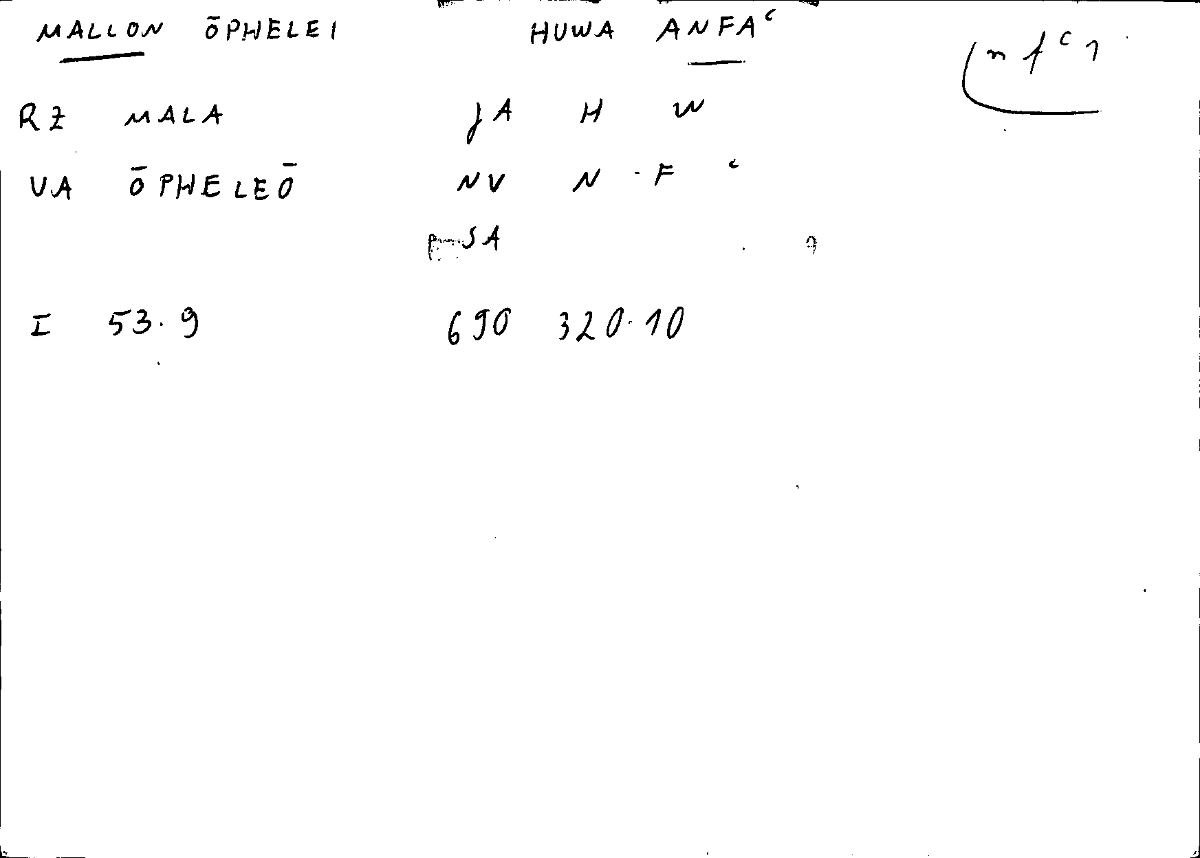 MALLON ŌPHELEI HUWA ANFAʿ
n fʿ 1
RZ MALA JA H W
VA ŌPHELEŌ NV N · F ʿ
SA
I 53.9 690 320.10